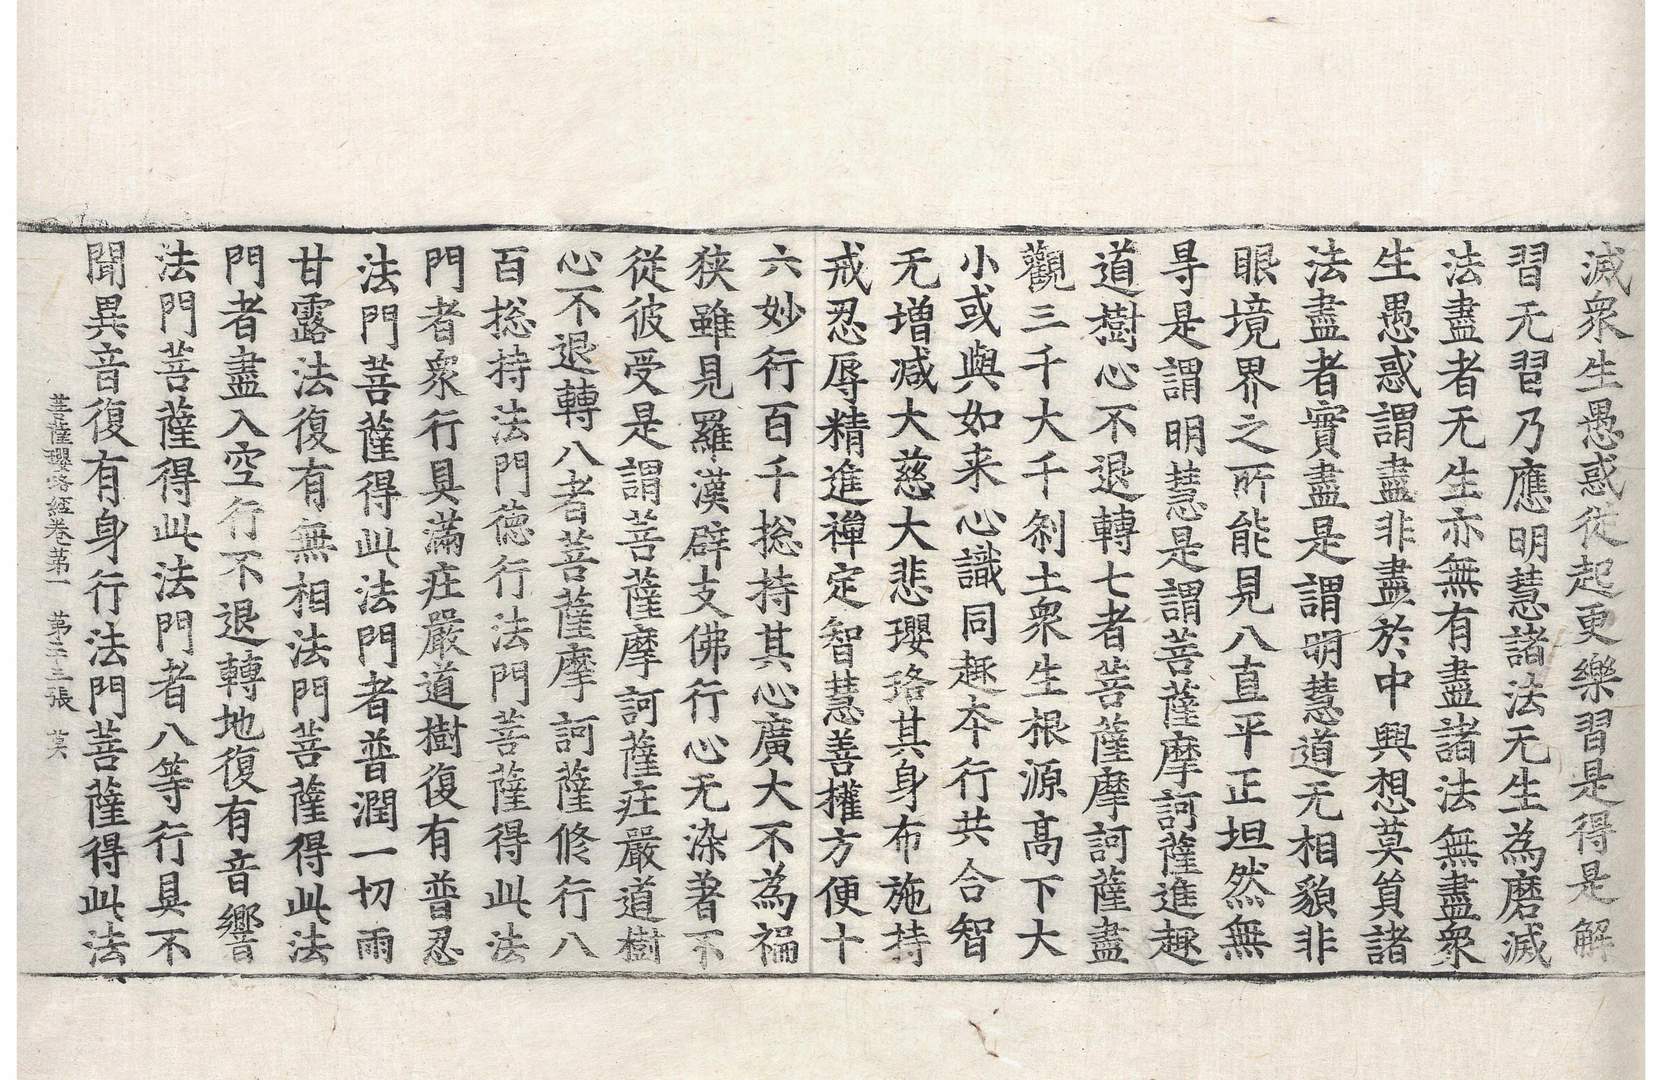 滅衆生愚惑従起更樂習是得是解
習无習乃應明慧諸法无生為磨滅
法盡者无生亦無有盡諸法無盡衆
生愚惑謂盡非盡於中興想莫負諸
法盡者實盡是謂明慧道无相貌非
眼境界之所能見八直平正坦然無
㝵是謂明慧是謂菩薩摩訶薩進趣
道樹心不退轉七者菩薩摩訶薩盡
觀三千大千刹土衆生根源高下大
小或與如来心識同趣夲行共合智
无增减大慈大悲瓔珞其身布施持
戒忍辱精進禪定智慧善權方便十
六妙行百千捴持其心廣大不為褊
狭雖見羅漢辟支佛行心无染著不
從彼受是謂菩薩摩訶薩庄嚴道樹
心不退轉八者菩薩摩訶薩修行八
百捴持法門德行法門菩薩得此法
門者衆行具滿庄嚴道樹復有普忍
法門菩薩得此法門者普潤一切雨
甘露法復有無相法門菩薩得此法
門者盡入空行不退轉地復有音響
法門菩薩得此法門者八等行具不
聞異音復有身行法門菩薩得此法
菩薩瓔珞經卷苐一 苐二十三張 莫